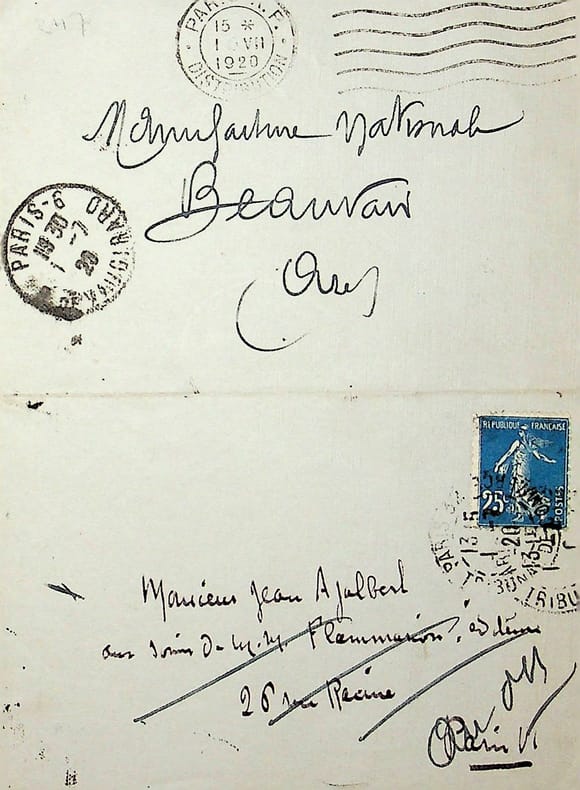 247
PARIS R.P.
15 *
1 VII
1920
DISTRIBUTION
Manufacture Nationale
Beauvais
Oise
PARIS-6
19 30
1 -7
20
RÉPUBLIQUE FRANÇAISE
25c
POSTES
Monsieur Jean Ajalbert
aux soins de M.M. Flammarion, éditeurs
26 rue Racine
Paris VI